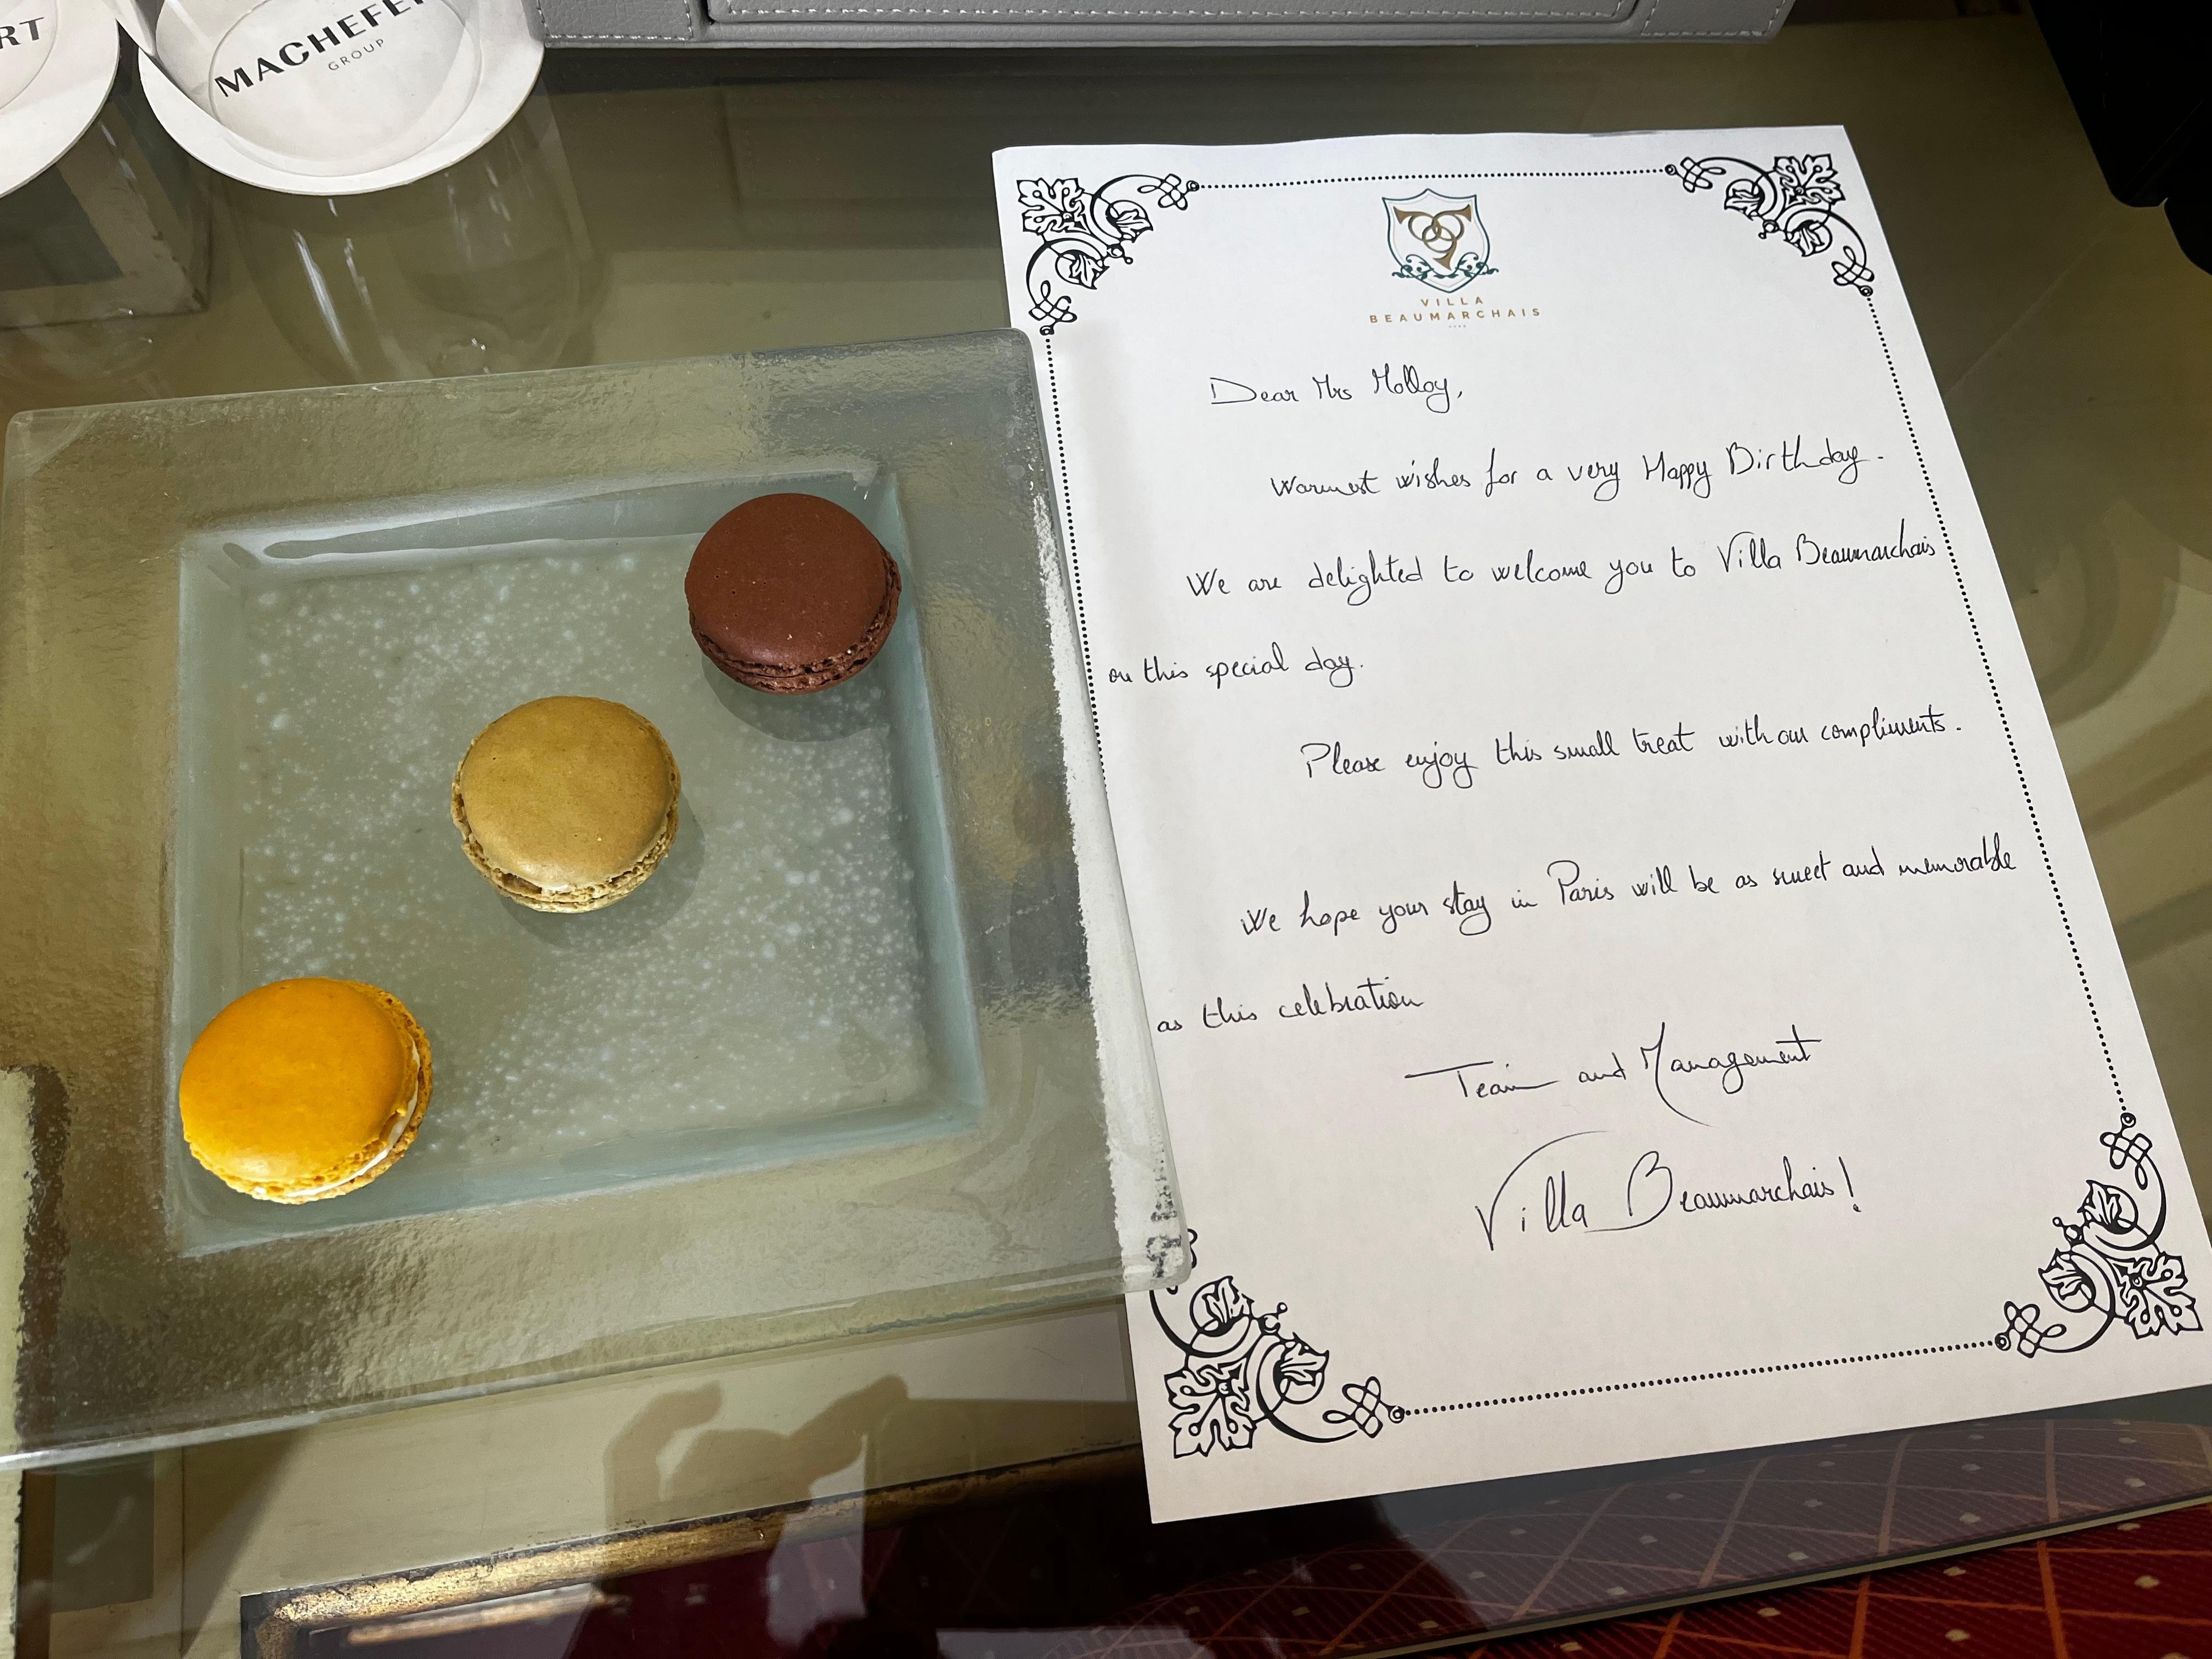 RT
MACHEFER
GROUP
VILLA
BEAUMARCHAIS
Dear Mrs Molloy,
Warmest wishes for a very Happy Birthday.
We are delighted to welcome you to Villa Beaumarchais
on this special day.
Please enjoy this small treat with our compliments.
We hope your stay in Paris will be as sweet and memorable
as this celebration
Team and Management
Villa Beaumarchais!